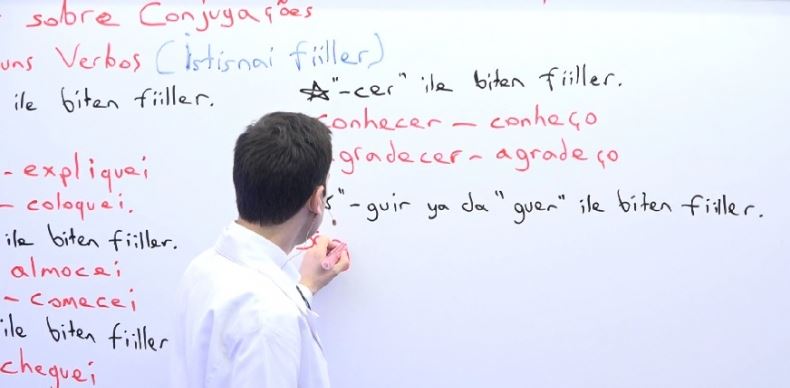 sobre Conjugações
uns Verbos (İstisnai fiiller)
ile biten fiiller.
- expliquei
- coloquei.
ile biten fiiller.
almocei
- comecei
ile biten fiiller
cheguei
"-cer" ile biten fiiller.
conhecer - conheço
gradecer - agradeço
"-guir ya da "guer" ile biten fiiller.